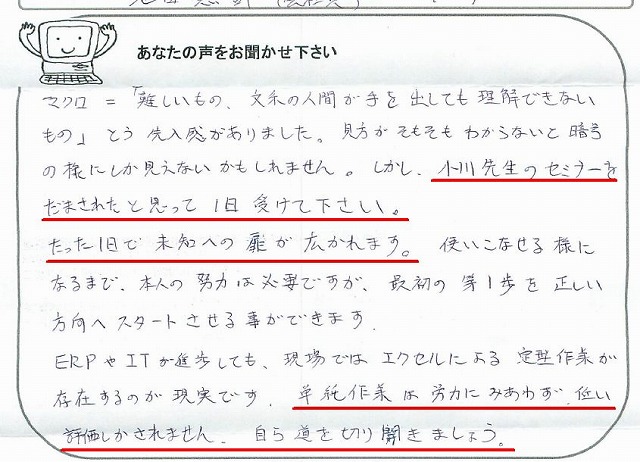 あなたの声をお聞かせ下さい
マクロ = 「難しいもの、文系の人間が手を出しても理解できない
もの」とう先入感がありました。見方がそもそもわからないと暗号
の様にしか見えないかもしれません。しかし、小川先生のセミナーを
だまされたと思って1日受けて下さい。
たった1日で未知への扉が広かれます。使いこなせる様に
なるまで、本人の努力は必要ですが、最初の第1歩を正しい
方向へスタートさせる事ができます.
ERPやITが進歩しても、現場ではエクセルによる定型作業が
存在するのが現実です. 単純作業は労力にみあわず、低い
評価しかされません. 自ら道を切り開きましょう。